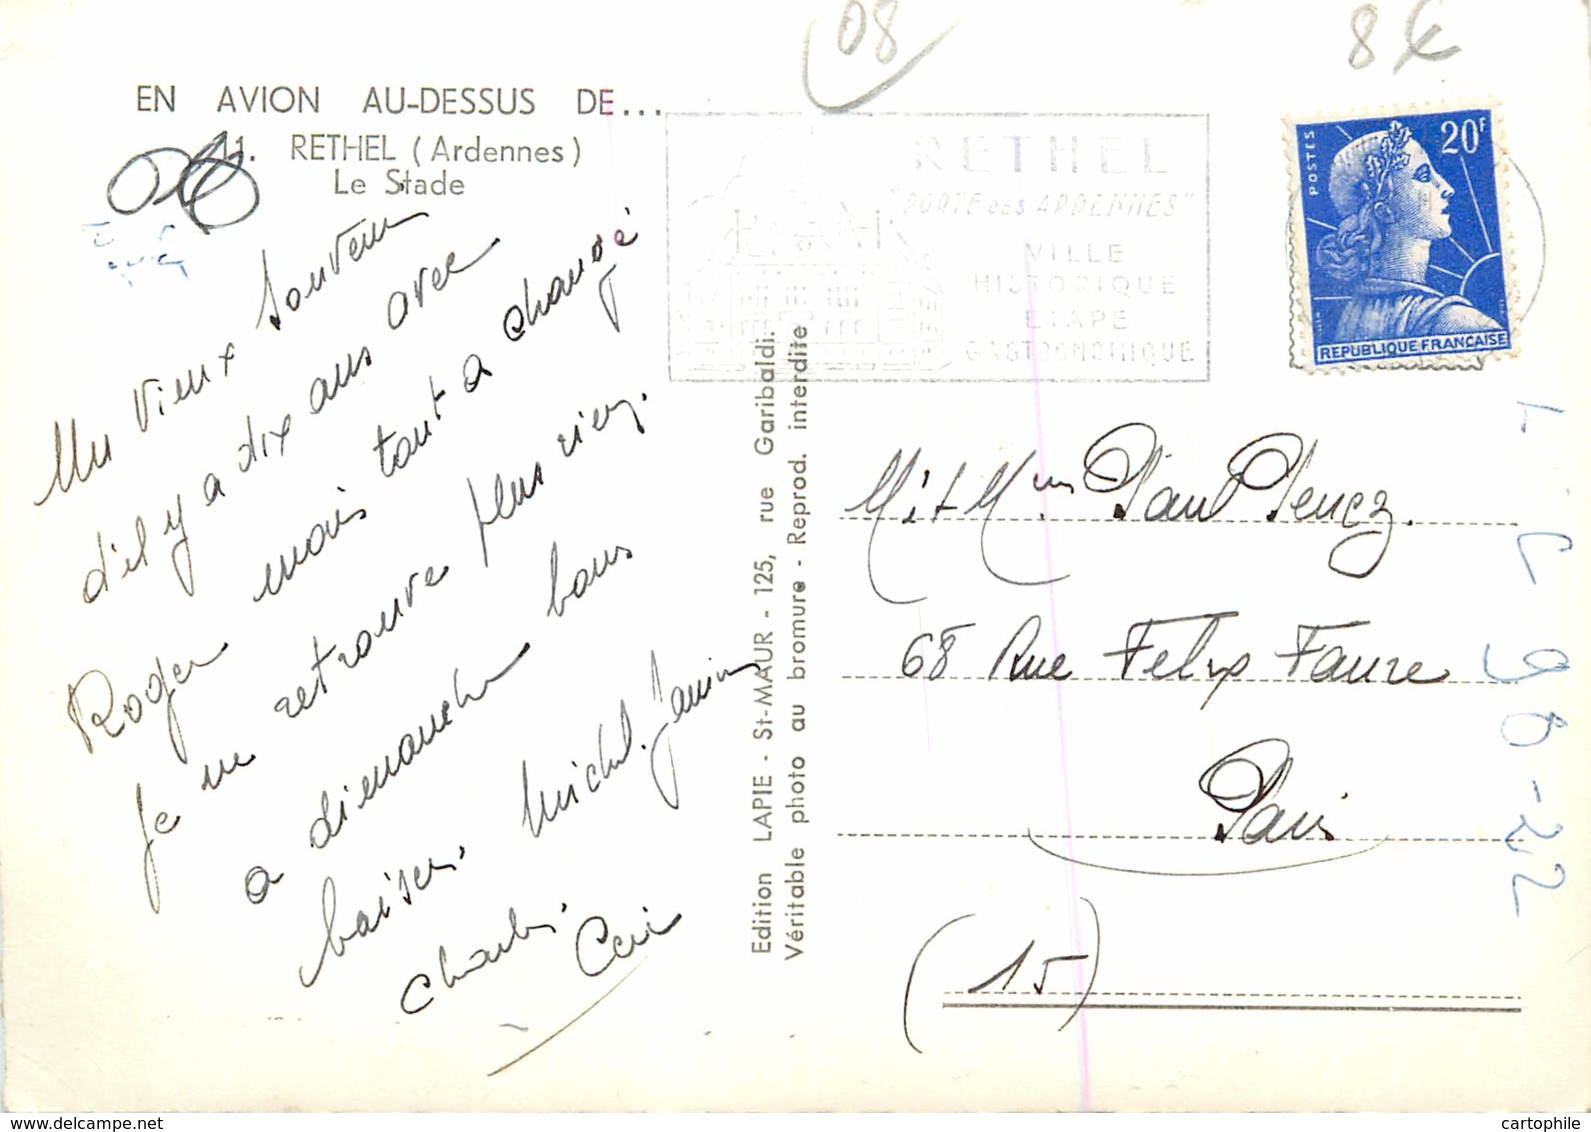 08
8€
EN AVION AU-DESSUS DE...
11. RETHEL (Ardennes)
Le Stade
RETHEL
"PORTE DES ARDENNES"
VILLE
HISTORIQUE
ETAPE
GASTRONOMIQUE
POSTES
20F
REPUBLIQUE FRANCAISE
Un vieux souvenir
d'il y a dix ans avec
Roger mais tant a changé
Je ne retrouve plus rien.
a dimanche bons
baisers. Michel. Janine
Charles.
Edition LAPIE - St-MAUR - 125, rue Garibaldi.
Véritable photo au bromure - Reprod. interdite
Mr et Mme Paul
68 Rue Felix Faure
Paris
(15)
L-C 98-22
cartophile